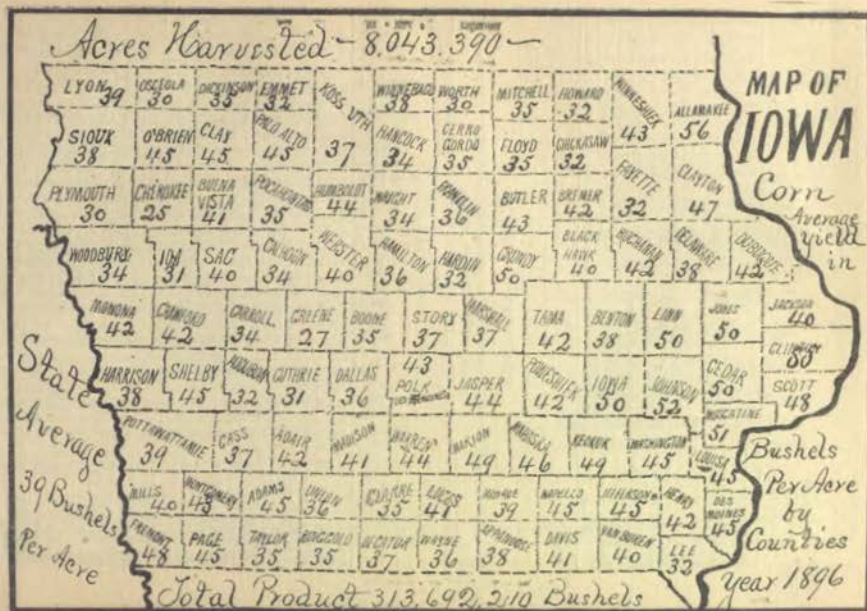 Acres Harvested - 8,043,390 -
MAP OF
IOWA
Corn
Average
yield
in
LYON 39 OSCEOLA 30 DICKINSON 35 EMMET 32 KOSSUTH 37 WINNEBAGO 38 WORTH 30 MITCHELL 35 HOWARD 32 WINNESHIEK 43 ALLAMAKEE 56
SIOUX 38 O'BRIEN 45 CLAY 45 PALO ALTO 45 HANCOCK 34 CERRO GORDO 35 FLOYD 35 CHICKASAW 32 FAYETTE 32 CLAYTON 47
PLYMOUTH 30 CHEROKEE 25 BUENA VISTA 41 POCAHONTAS 35 HUMBOLDT 44 WRIGHT 34 FRANKLIN 36 BUTLER 43 BREMER 42
WOODBURY 34 IDA 31 SAC 40 CALHOUN 34 WEBSTER 40 HAMILTON 36 HARDIN 32 GRUNDY 50 BLACK HAWK 40 BUCHANAN 42 DELAWARE 38 DUBUQUE 42
MONONA 42 CRAWFORD 42 CARROLL 34 GREENE 27 BOONE 35 STORY 37 MARSHALL 37 TAMA 42 BENTON 38 LINN 50 JONES 50 JACKSON 40
CLINTON 50
HARRISON 38 SHELBY 45 AUDUBON 32 GUTHRIE 31 DALLAS 36 43 POLK DES MOINES JASPER 44 POWESHIEK 42 IOWA 50 JOHNSON 52 CEDAR 50 SCOTT 48
MUSCATINE 51
POTTAWATTAMIE 39 CASS 37 ADAIR 42 MADISON 41 WARREN 44 MARION 49 MAHASKA 46 KEOKUK 49 WASHINGTON 45 LOUISA 45
MILLS 40 MONTGOMERY 43 ADAMS 45 UNION 36 CLARKE 35 LUCAS 41 MONROE 39 WAPELLO 45 JEFFERSON 45 HENRY 42 DES MOINES 45
FREMONT 48 PAGE 45 TAYLOR 35 RINGGOLD 35 DECATUR 37 WAYNE 36 APPANOOSE 38 DAVIS 41 VAN BUREN 40 LEE 32
State
Average
39 Bushels
Per Acre
Bushels
Per Acre
by
Counties
year 1896
Total Product 313,692,210 Bushels